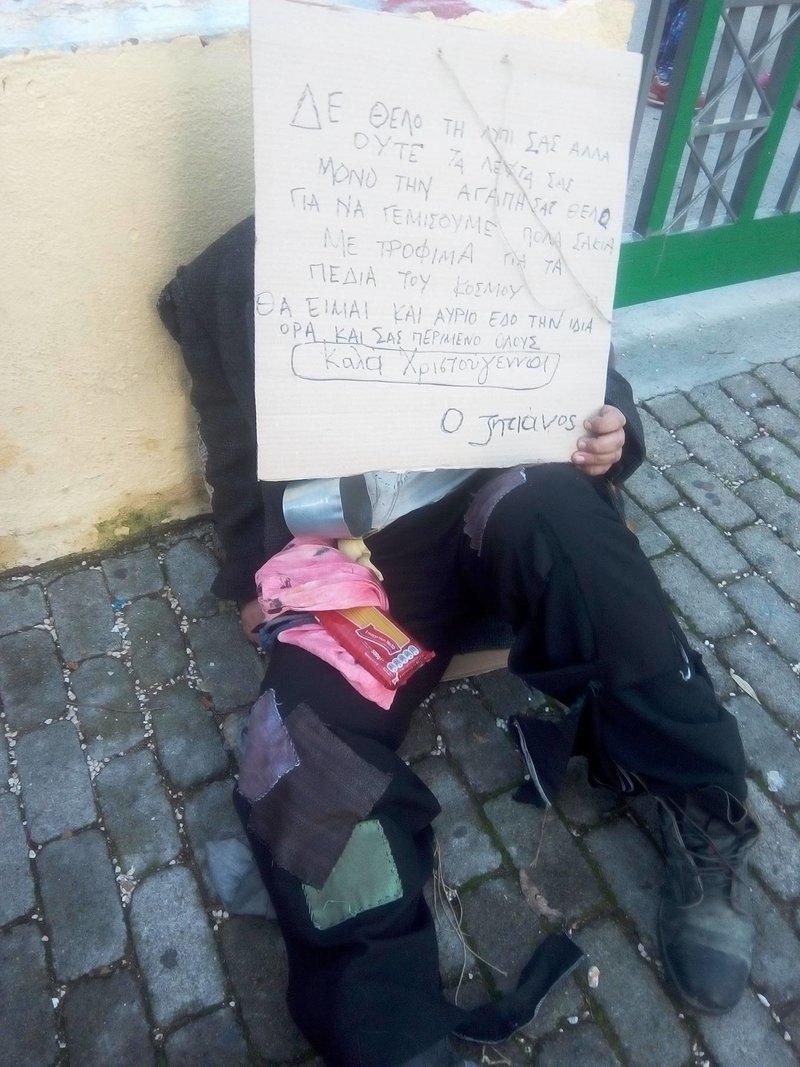 ΔΕ ΘΕΛΟ ΤΗ ΛΥΠΙ ΣΑΣ ΑΛΛΑ
ΟΥΤΕ ΤΑ ΛΕΥΤΑ ΣΑΣ
ΜΟΝΟ ΤΗΝ ΑΓΑΠΗ ΣΑΣ ΘΕΛΩ
ΓΙΑ ΝΑ ΓΕΜΙΣΟΥΜΕ ΠΟΛΑ ΣΑΚΙΑ
ΜΕ ΤΡΟΦΙΜΑ ΓΙΑ ΤΑ
ΠΕΔΙΑ ΤΟΥ ΚΟΣΜΟΥ
ΘΑ ΕΙΜΑΙ ΚΑΙ ΑΥΡΙΟ ΕΔΟ ΤΗΝ ΙΔΙΑ
ΟΡΑ ΚΑΙ ΣΑΣ ΠΕΡΙΜΕΝΟ ΟΛΟΥΣ
Καλα Χριστουγεννα
Ο ζητιάνος